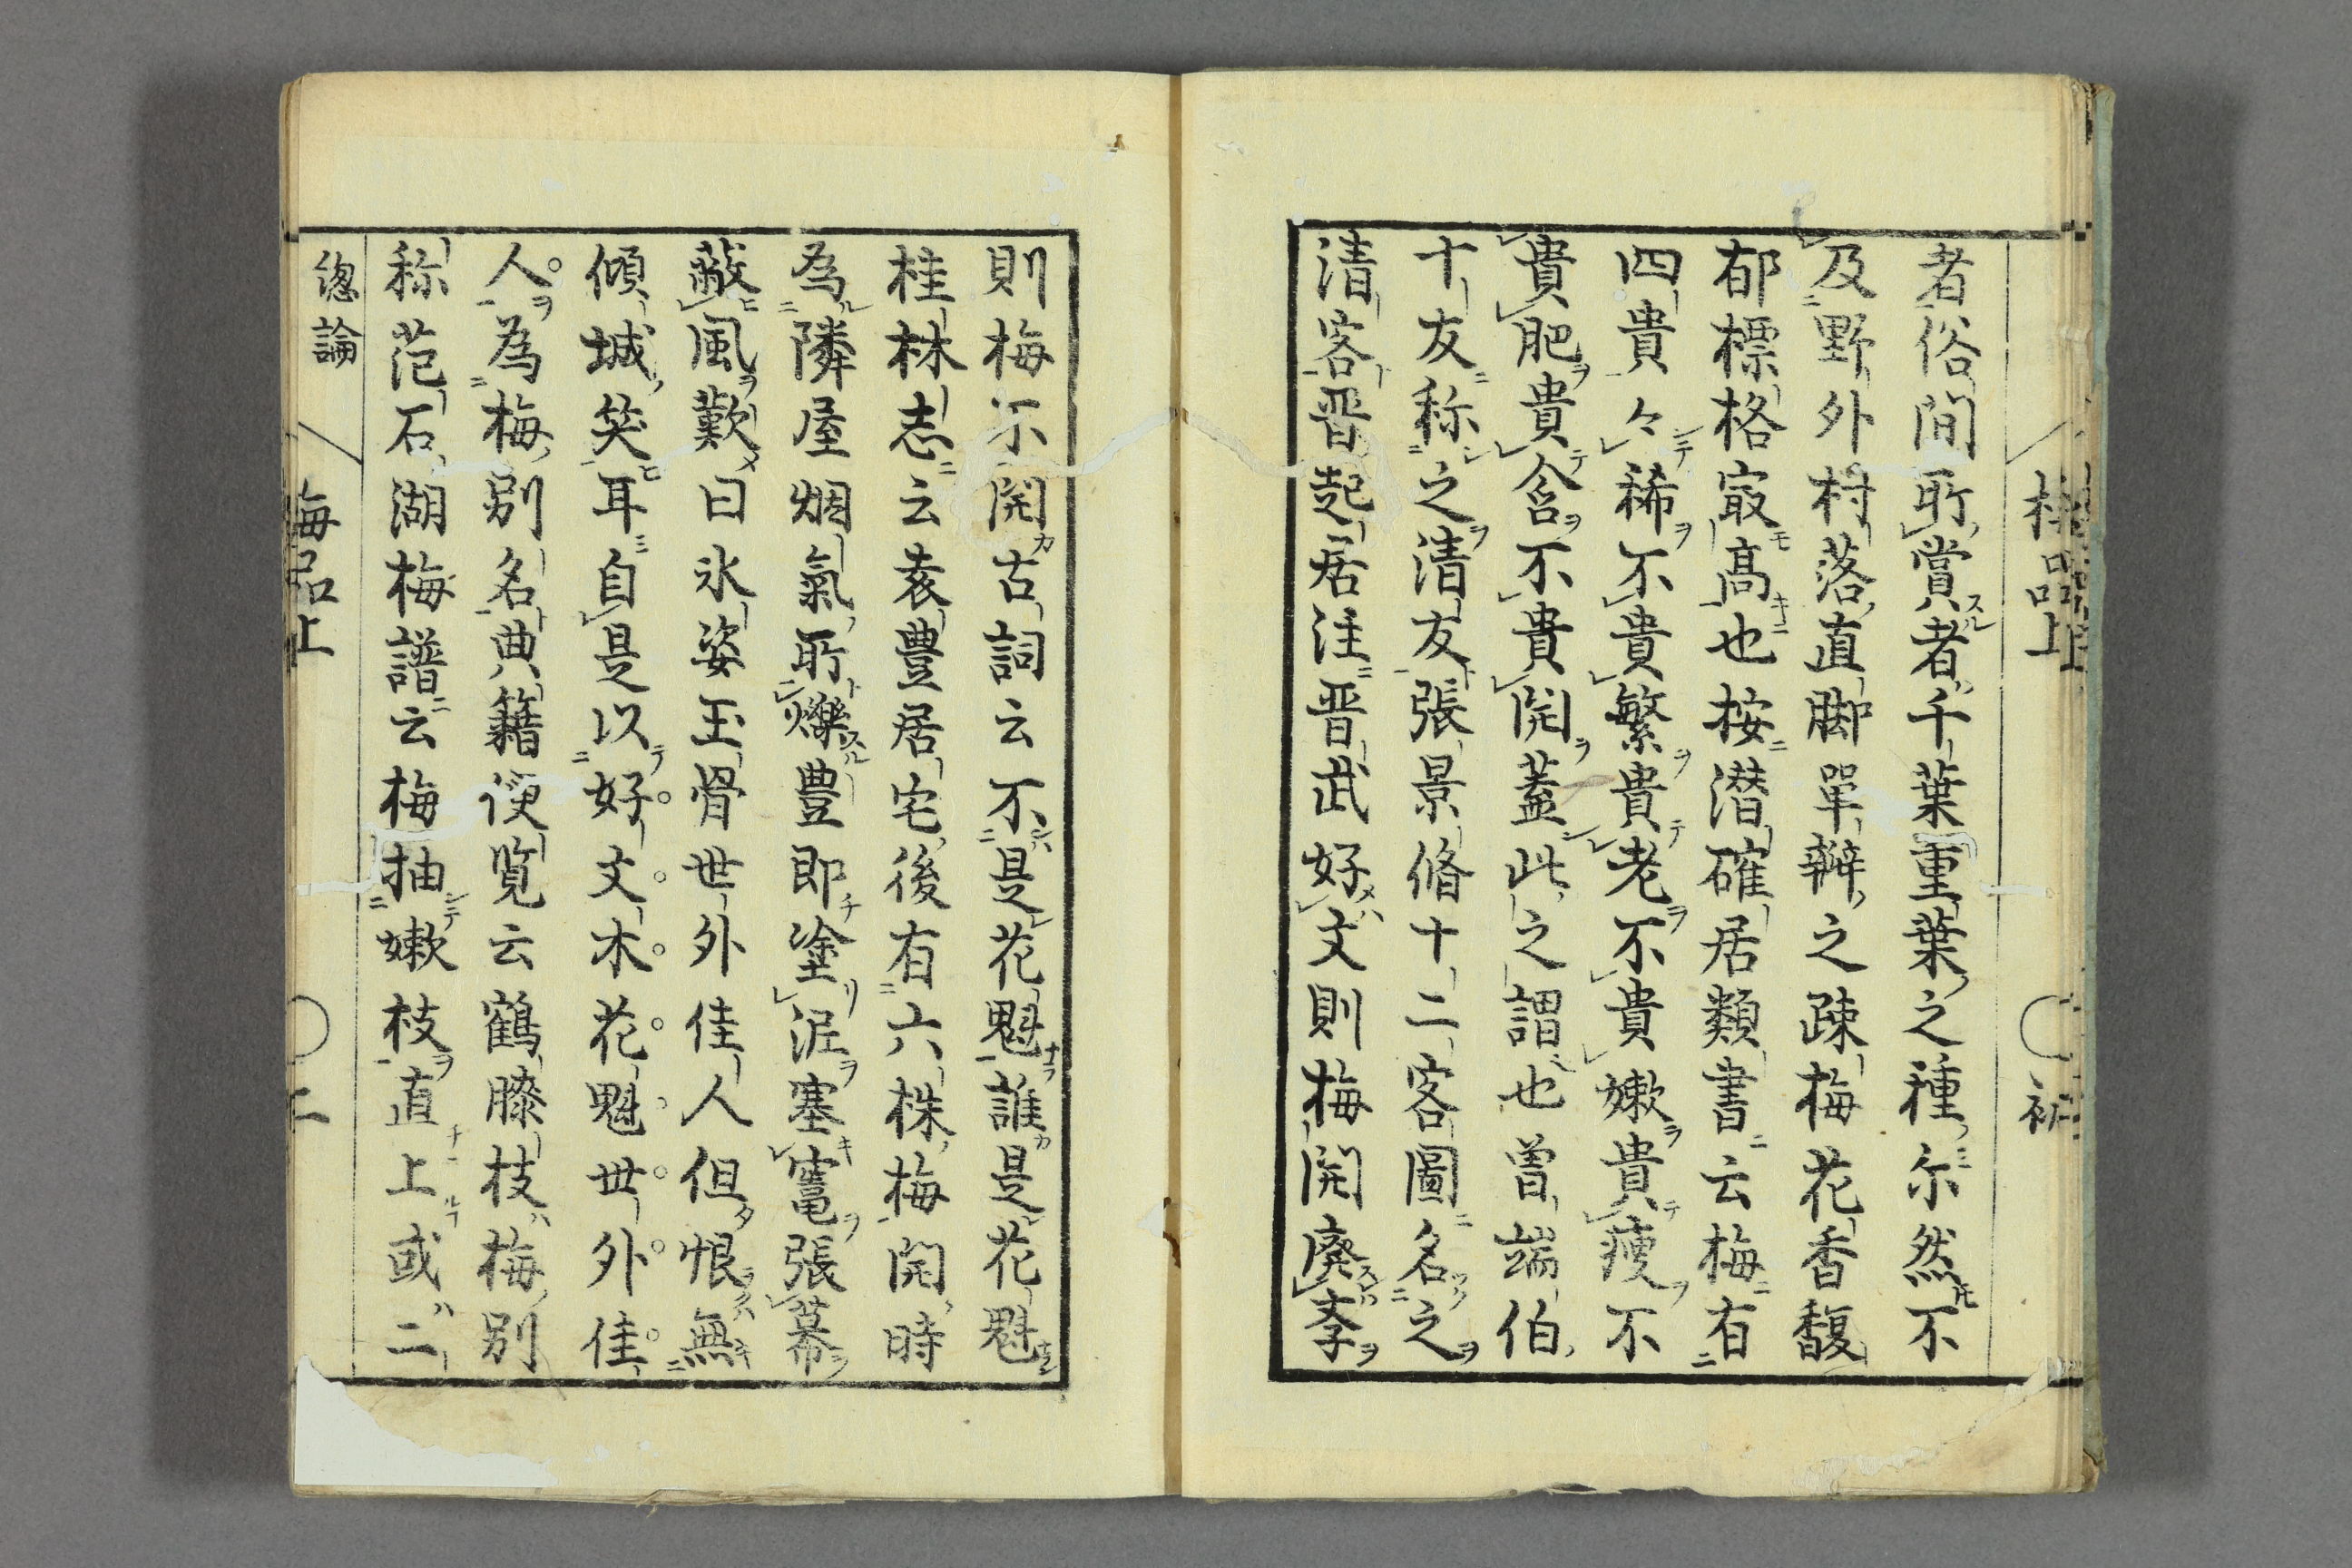 梅品上
者俗間所賞者千葉重葉之種尓然不
及野外村落直脚単辨之疎梅花香馥
郁標格㝡高也按潜確居類書云梅有
四貴々稀不貴繁貴老不貴嫩貴瘦不
貴肥貴含不貴開蓋此之謂也曽端伯
十友称之清友張景脩十二客圖名之
清客晋起居注晋武好文則梅開廃李
則梅不開古詞云不是花魁誰是花魁
桂林志云袁豊居宅後有六株梅開時
為隣屋烟氣所爍豊即塗泥塞竃張幕
蔽風歎曰氷姿玉骨世外佳人但恨無
傾城笑耳自是以好文木花魁世外佳
人為梅別名典籍便覧云鶴膝枝梅別
称范石湖梅譜云梅抽嫩枝直上或二
總論
梅品上
二